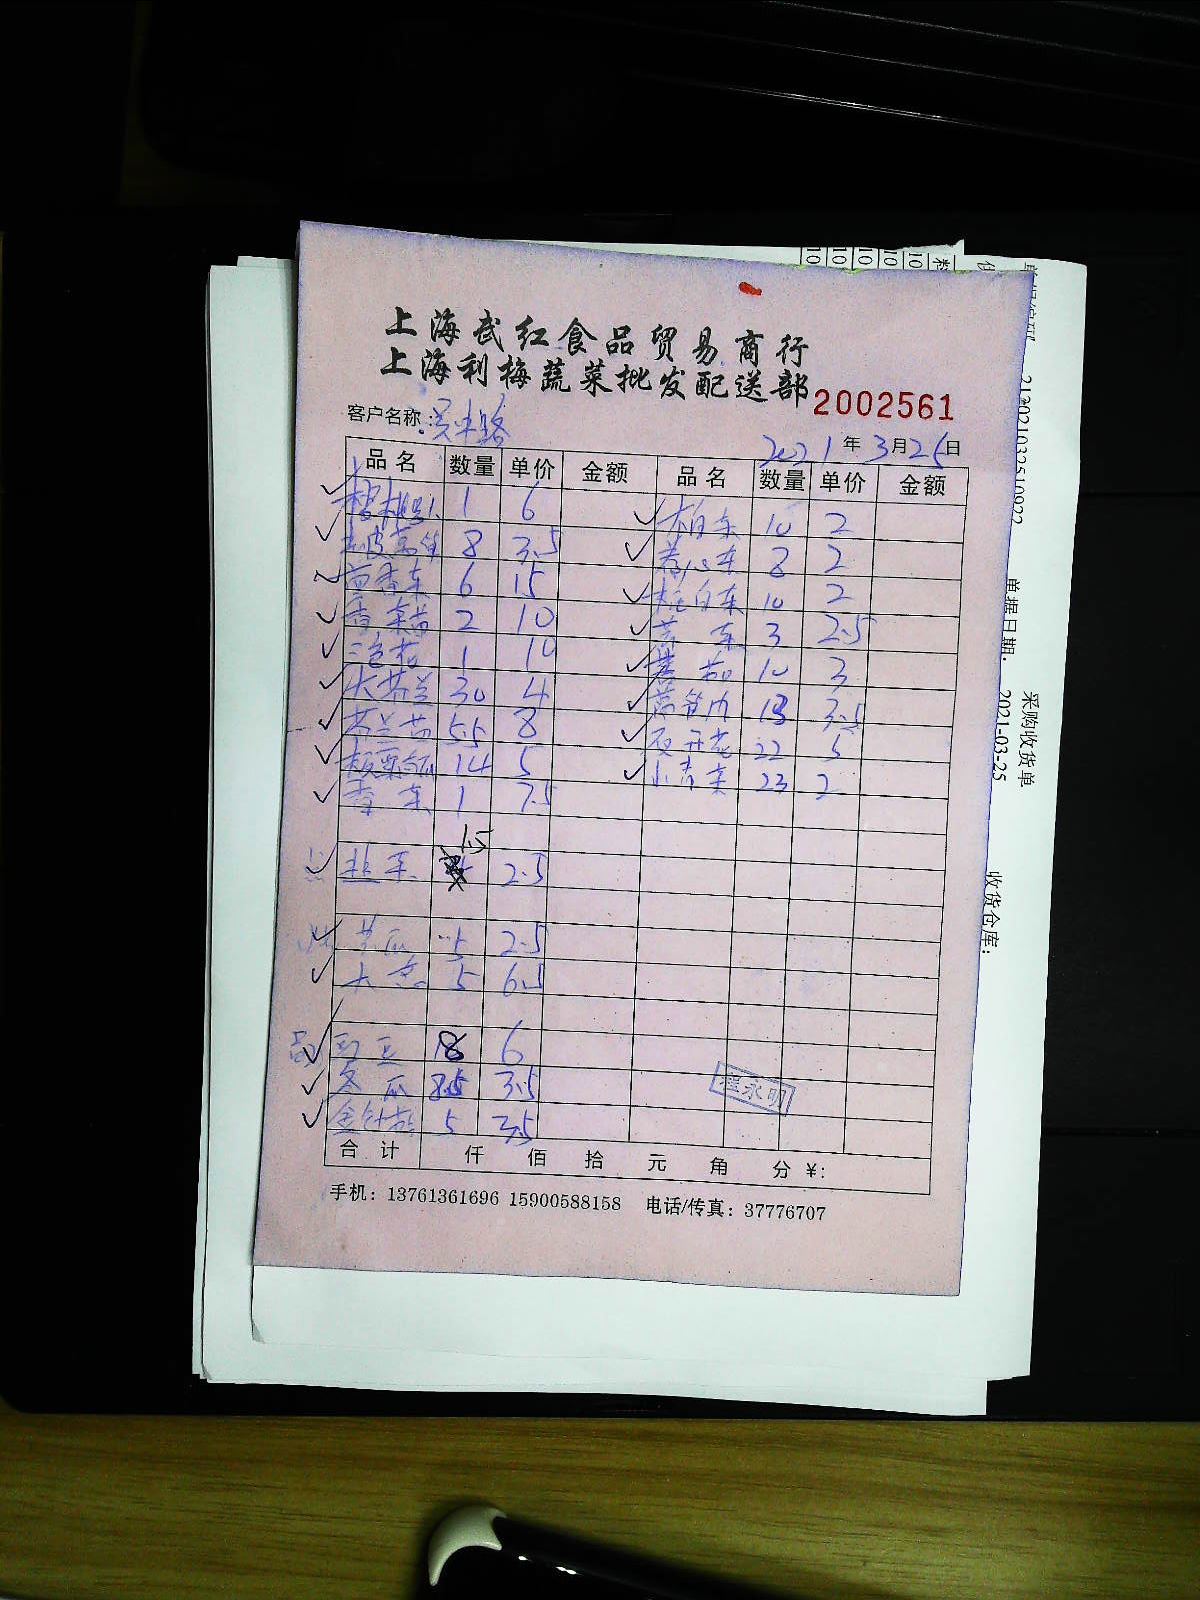 上海武红食品贸易商行
上海利梅蔬菜批发配送部
2002561
客户名称:吴中路
2021年3月25日
品名 数量 单价 金额 品名 数量 单价 金额
1 6
10 2
8 3.5
卷心菜 8 2
茴香菜 6 15
10 2
香菜苗 2 10
3 2.5
三色椒 1 14
蕃茄 10 3
大芥兰 30 4
莴笋肉 13 3.5
芥兰苗 5.5 8
夜开花 22 5
板栗南瓜 14 5
小青菜 23 2
香菜 1 7.5
1.5
韭菜 2.5
黄瓜 5 2.5
大葱 5 6.5
豆 18 6
冬瓜 8.5 3.5
金针菇 5 3.5
程永明
合计 仟 佰 拾 元 角 分 ¥:
手机: 13761361696 15900588158 电话/传真: 37776707
采购收货单
212021032510922
单据日期:
2021-03-25
收货仓库:
10
10
10
10
10